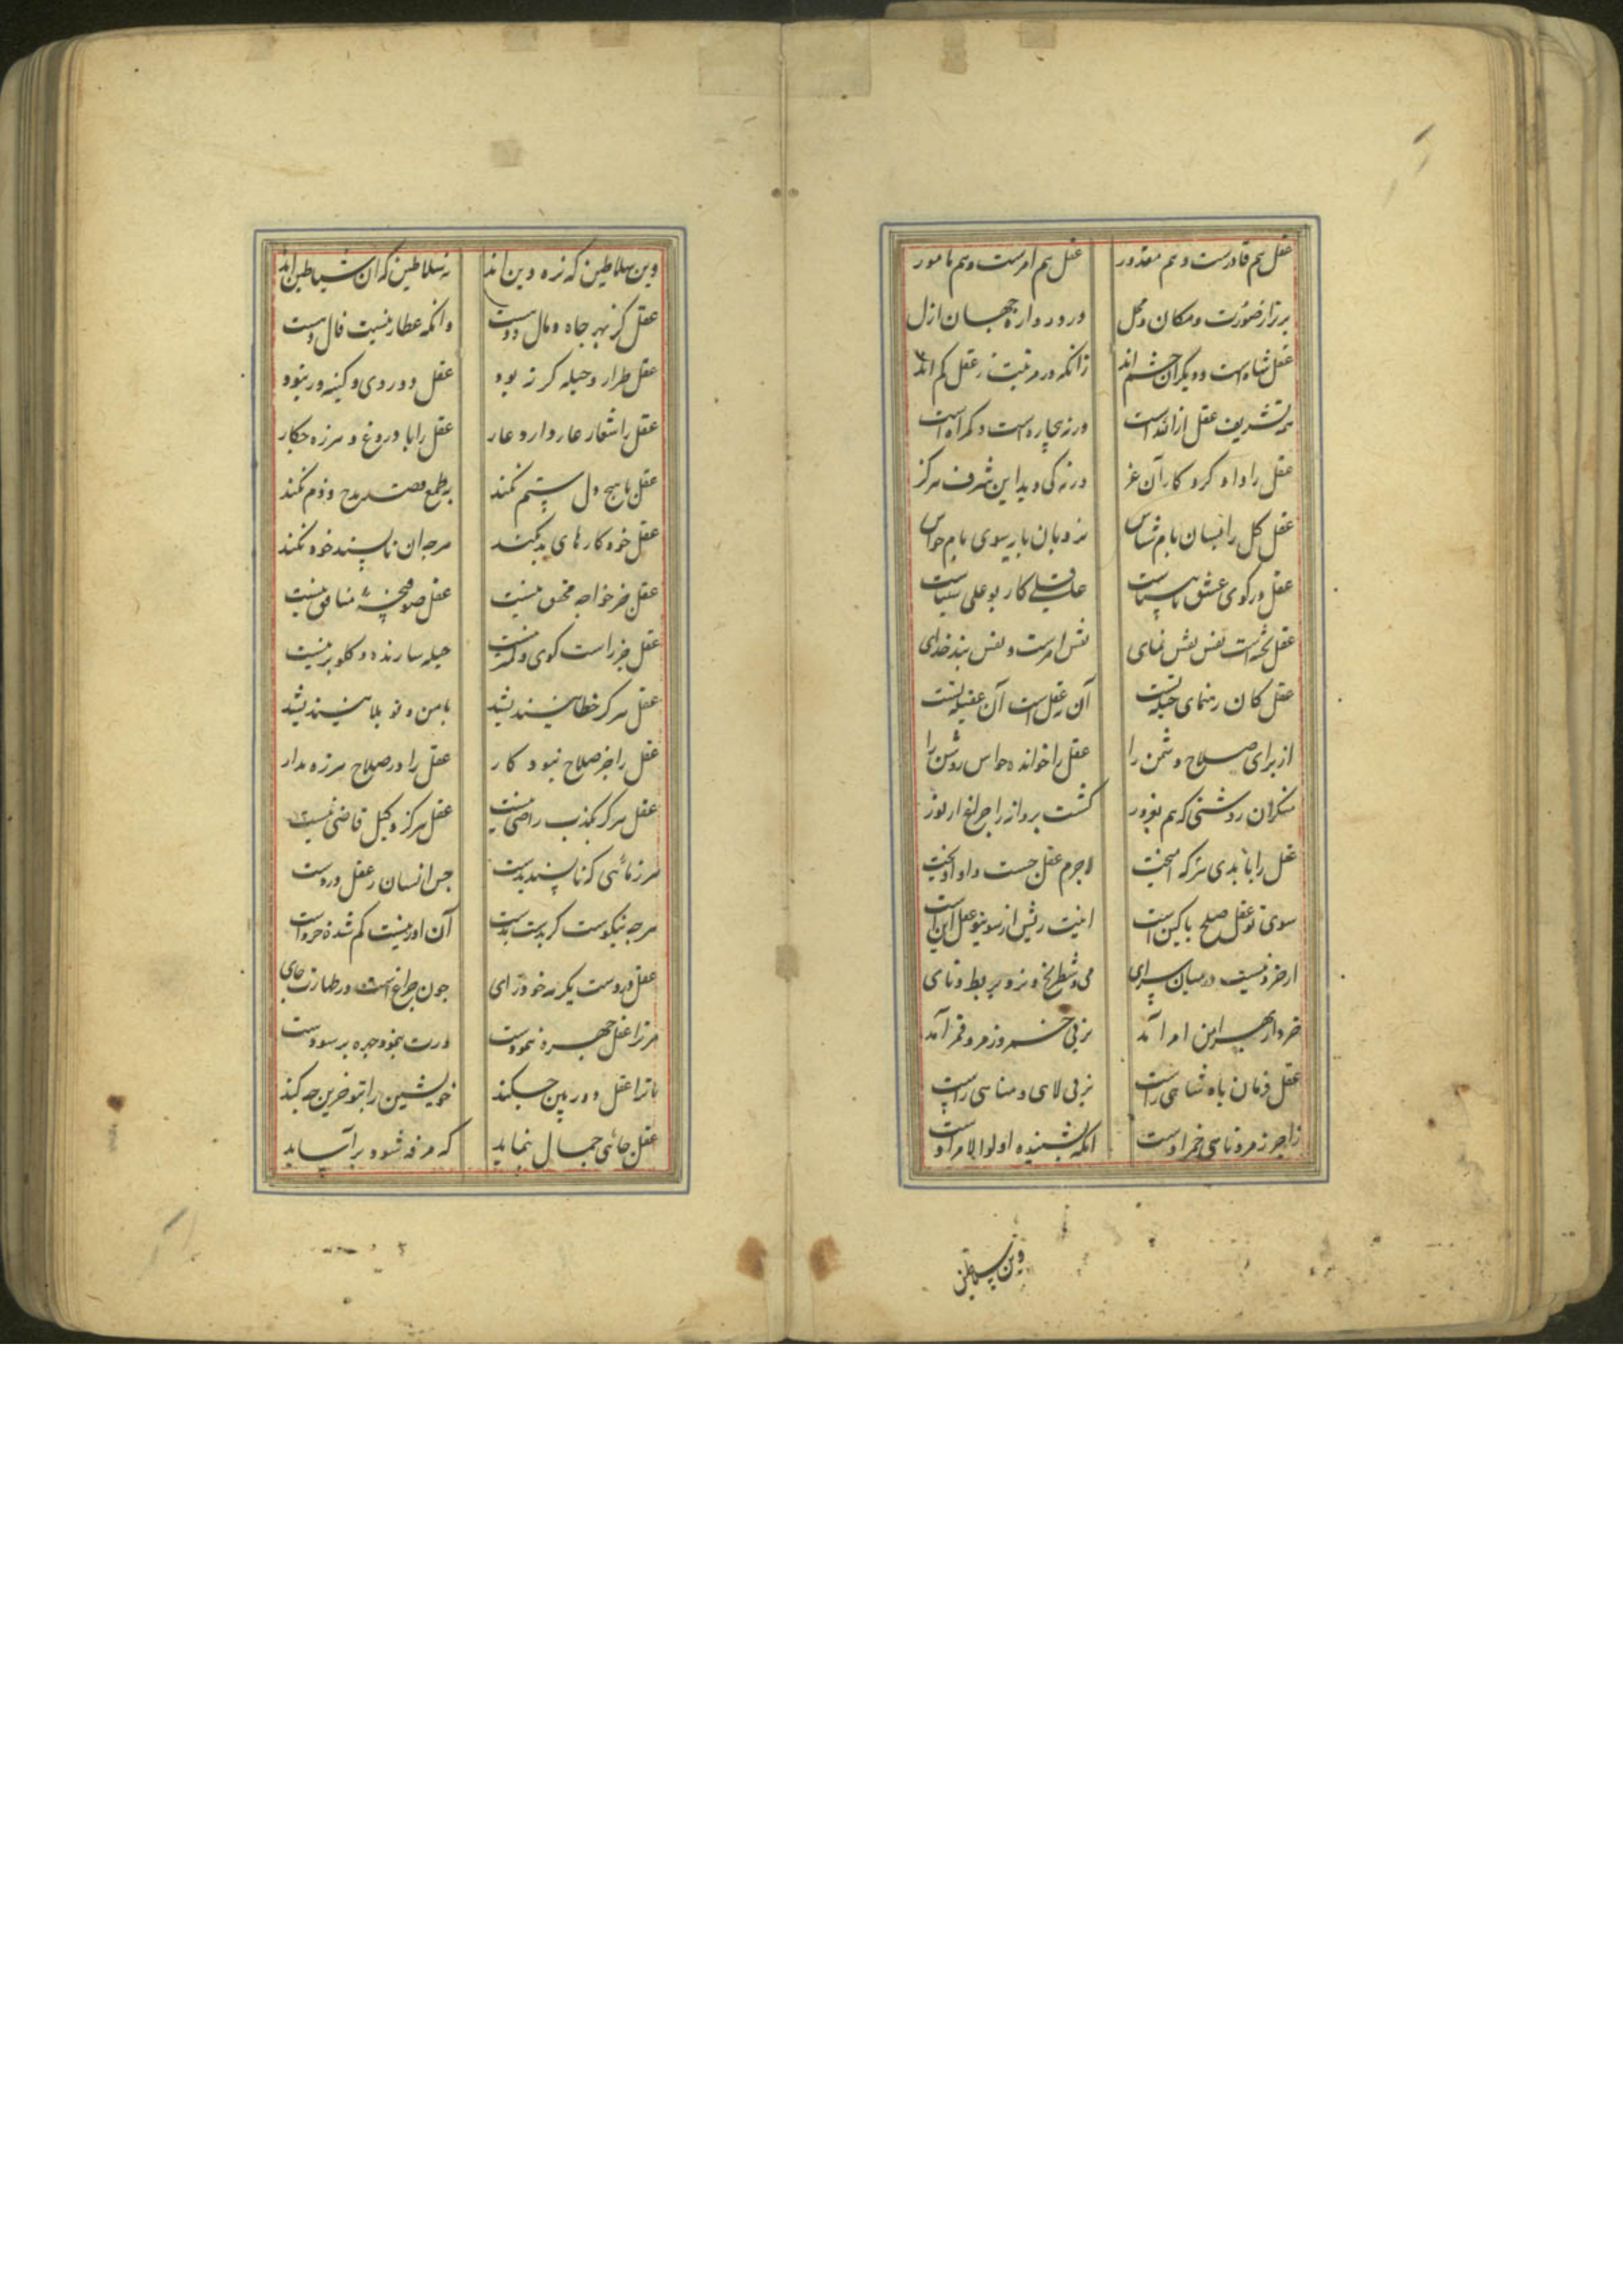 عقل هم قادرست و هم مقدور عقل هم امرست و هم مامور
برتر از صورت و مکان و محل در دروازه جهان ازل
عقل شاهست و دیگران حشم اند زانکه در مرتبت ز عقل کم اند
همه تشریف عقل از الله است ورنه بیچاره است و گمراه است
عقل را داد کردکار آن عز ورنه کی دید این شرف هرکز
عقل کل را بسان بام شناس نردبان پایه سوی بام حواس
عقل در کوی عشق نابیناست عاقلی کار بوعلی سیناست
عقل تخته است نفس نقش نمای نفس امرست و نفس بند خدای
عقل کان رهنمای حیله تست آن نه عقل است آن عقیله تست
از برای صلاح دشمن را عقل را خوانده حواس روشن را
منکر آن روشنی که هم بغرور کشت پروانه را چراغ از نور
عقل را با بدی هر که امیخت لاجرم عقل جست و او اویخت
سوی تو عقل صلح با کین است اینت ریش ار سوی تو عقل این است
ار خرد نیست در میان سرای می و شطرنج و نرد و بربط و نای
خرد از بهر این امر آمد نز پی خمر و زمر و قمر آمد
عقل فرمان پادشاهی راست نز پی لاهی و مناهی راست
زاجر زمر و ناهی خمر اوست انکه بشنیده اولوا الامر اوست
وین سلاطین
وین سلاطین که زه دین اند نه سلاطین که ان شیاطین اند
عقل کز بهر جاه و مال دوست وانکه عطار نیست فال دوست
عقل طرار و حیله کر نه بود عقل دو روی و کینه ور نبود
عقل را شعار عار دارد عار عقل را با دروغ و هرزه چکار
عقل با هیچ دل ستم نکند به طمع قصد مدح و ذم نکند
عقل خود کارهای بد نکند هرچه ان ناپسند خود نکند
عقل جز خواجه محقق نیست عقل صوفیچه منافق نیست
عقل جز راست کوی و نیست حیله سازنده و کلوبر نیست
عقل هرکز خطا نیندیشد با من و تو بلا نیندیشد
عقل را جز صلاح نبود کار عقل را در صلاح هرزه مدار
عقل هرکز بکذب راضی نیست عقل هرکز وکیل قاضی نیست
هر زمانی که ناپسند بدست جز انسان ز عقل دورست
هرچه نیکوست کر بدست بدست آن او نیست کم شده خردست
عقل دو دوست یکر نه خودرای چون چراغ است در طهارت جای
مر ترا عقل چهره ننمودست درت بنمود چهره برسودست
با ترا عقل دوربین چکند خویشتن را بتو خرین چه کند
عقل جائی جمال ننماید که مرفه شود براساید